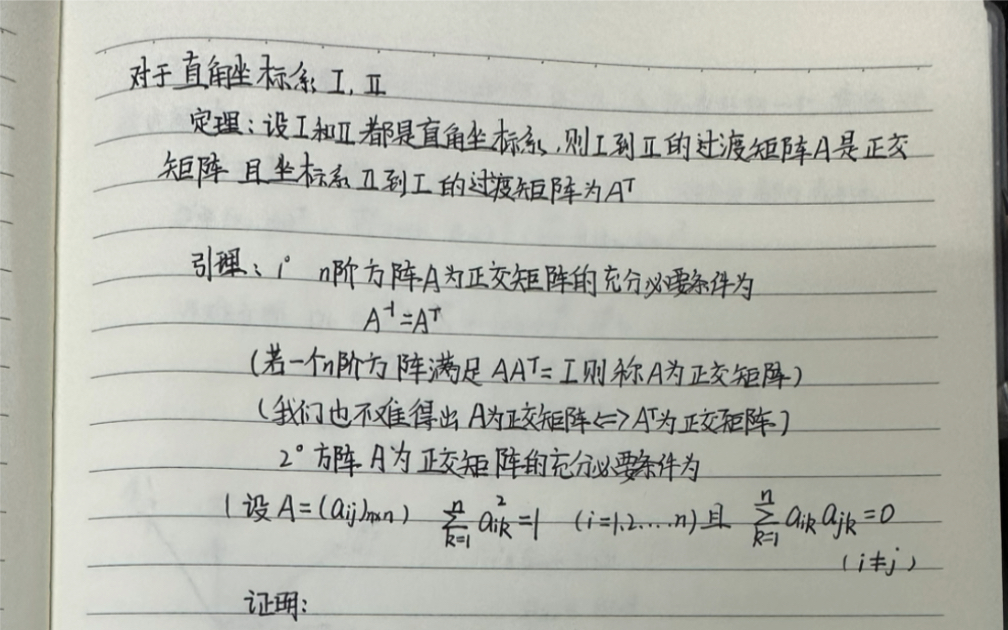 对于直角坐标系 I, II
定理:设I和II都是直角坐标系,则I到II的过渡矩阵A是正交
矩阵 且坐标系II到I的过渡矩阵为Aᵀ
引理:1° n阶方阵A为正交矩阵的充分必要条件为
A⁻¹=Aᵀ
(若一个n阶方阵满足AAᵀ=I则称A为正交矩阵)
(我们也不难得出 A为正交矩阵<=>Aᵀ为正交矩阵)
2° 方阵A为正交矩阵的充分必要条件为
(设A=(aij)n×n) ∑ⁿₖ₌₁ aik²=1 (i=1,2....n)且 ∑ⁿₖ₌₁ aik ajk=0
(i≠j)
证明: